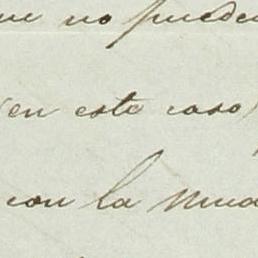 no puede
(en este caso)
con la